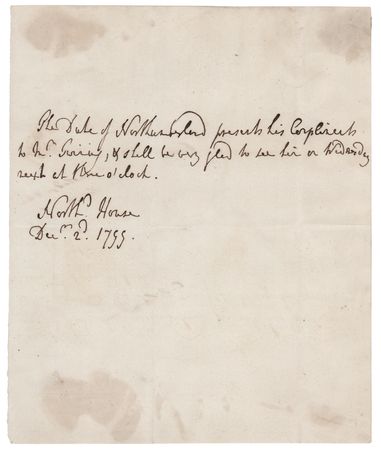 The Duke of Northumberland presents his Compliments
to Mr. & shall be very glad to see him on Wednesday
next at o'Clock.
North.d House
Dec.r 2.d 1795.